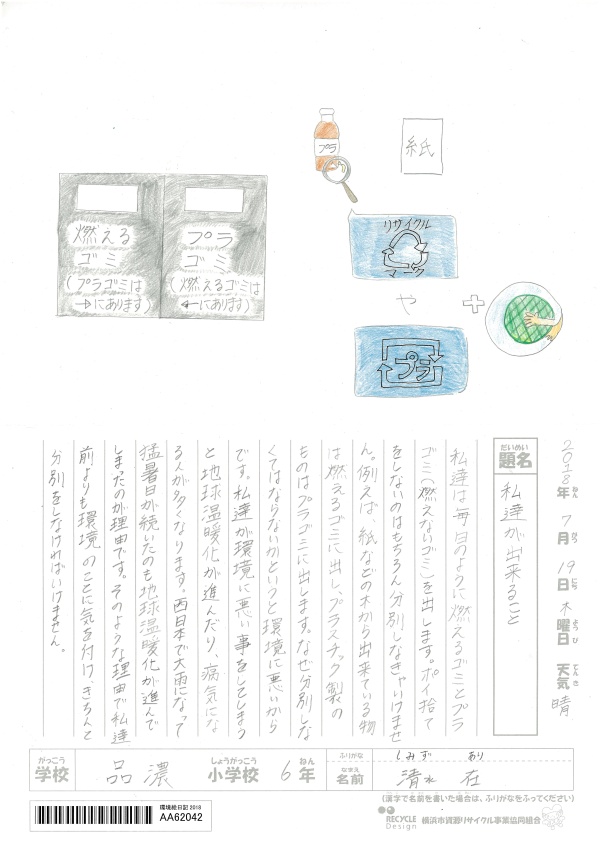 プラ
紙
燃える
ゴミ
(プラゴミは
→にあります)
プラ
ゴミ
(燃えるゴミは
←にあります)
リサイクル
マーク
や
+
プラ
2018年 7月 19日 木曜日 天気 晴
ねん がつ にち ようび てんき
だいめい
題名
私達が出来ること
私達は毎日のように燃えるゴミとプラ
ゴミ(燃えないゴミ)を出します。ポイ捨て
をしないのはもちろん分別しなきゃいけませ
ん。例えば、紙などの木から出来ている物
は燃えるゴミに出し、プラスチック製の
ものはプラゴミに出します。なぜ分別しな
くてはならないかというと環境に悪いから
です。私達が環境に悪い事をしてしまう
と地球温暖化が進んだり、病気にな
る人が多くなります。西日本で大雨になって
猛暑日が続いたのも地球温暖化が進んで
しまったのが理由です。そのような理由で私達
前よりも環境のことに気を付け、きちんと
分別をしなければいけません。
がっこう
学校
品濃
しょうがっこう
小学校
6年
ねん
ふりがな
しみず あり
なまえ
名前
清水 在
(漢字で名前を書いた場合は、ふりがなをふってください)
環境絵日記 2018
AA62042
RECYCLE
Design
横浜市資源リサイクル事業協同組合